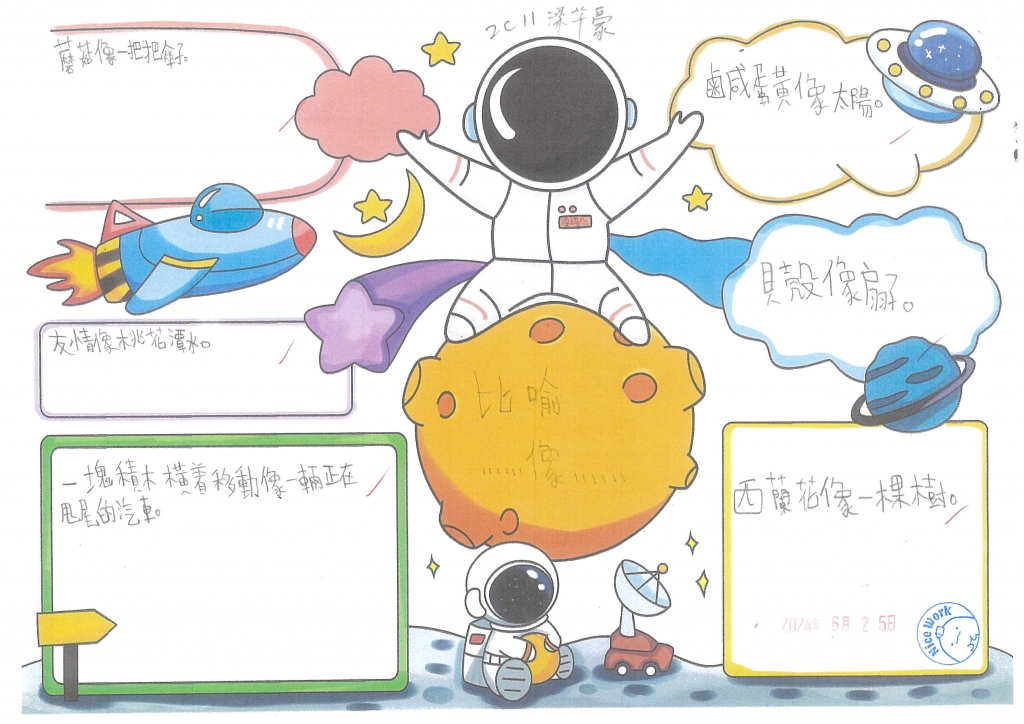 2C11 梁芊豪
蘑菇像一把把傘子。
鹵咸蛋黃像太陽。
貝殼像扇子。
友情像桃花潭水。
比喻
……像……
一塊積木橫着移動像一輛正在
甩尾的汽車。
西蘭花像一棵樹。
2024年 6月 25日
Nice Work